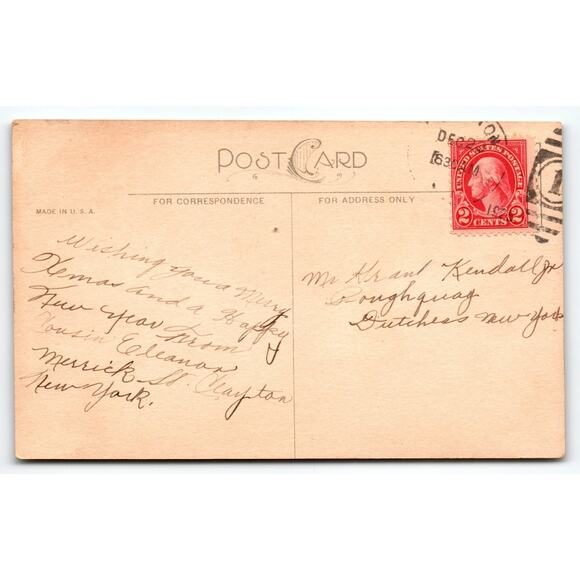 POST CARD
MADE IN U. S. A.
FOR CORRESPONDENCE
FOR ADDRESS ONLY
UNITED STATES POSTAGE
2 CENTS 2
DEC 2
630
Wishing you a Merry
Xmas and a Happy
New Year From
Cousin Eleanor
Merrick St. Clayton
New York.
Mr Kendall Jr
Poughquag
Dutchess New York